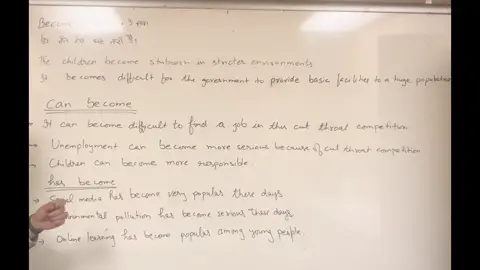 Become
The children become stubborn in stricter environments
It becomes difficult for the government to provide basic facilities to a huge population
Can become
→ It can become difficult to find a job in this cut throat competition.
→ Unemployment can become more serious because of cut throat competition
→ Children can become more responsible.
has become
→ Social media has become very popular these days.
Environmental pollution has become serious these days
→ Online learning has become popular among young people.